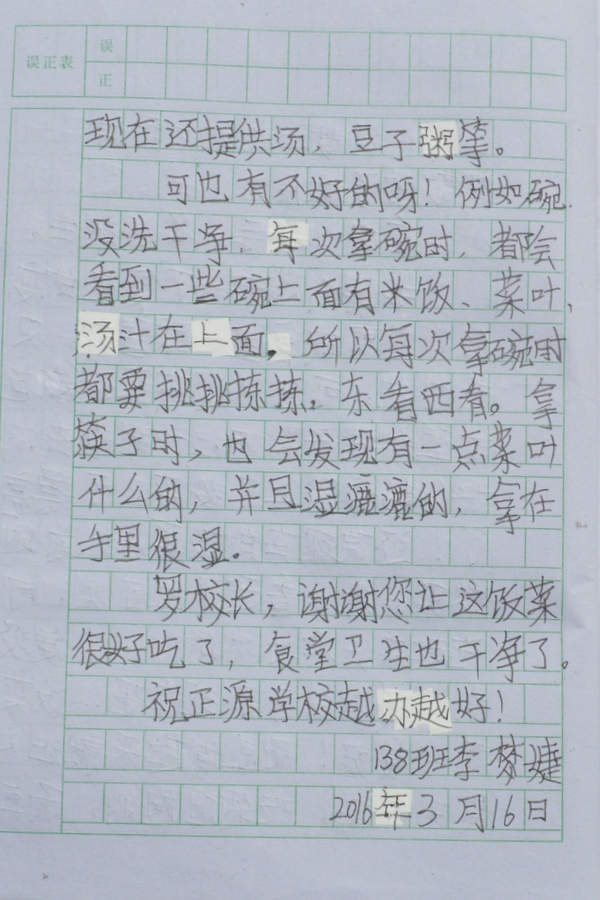 误正表
误
正
现在还提供汤，豆子粥等。
可也有不好的呀！例如碗
没洗干净，每次拿碗时，都会
看到一些碗上面有米饭、菜叶，
汤汁在上面，所以每次拿碗时
都要挑挑拣拣，东看西看。拿
筷子时，也会发现有一点菜叶
什么的，并且湿漉漉的，拿在
手里很湿。
罗校长，谢谢您让这饭菜
很好吃了，食堂卫生也干净了。
祝正源学校越办越好！
138班李梦婕
2016年3月16日